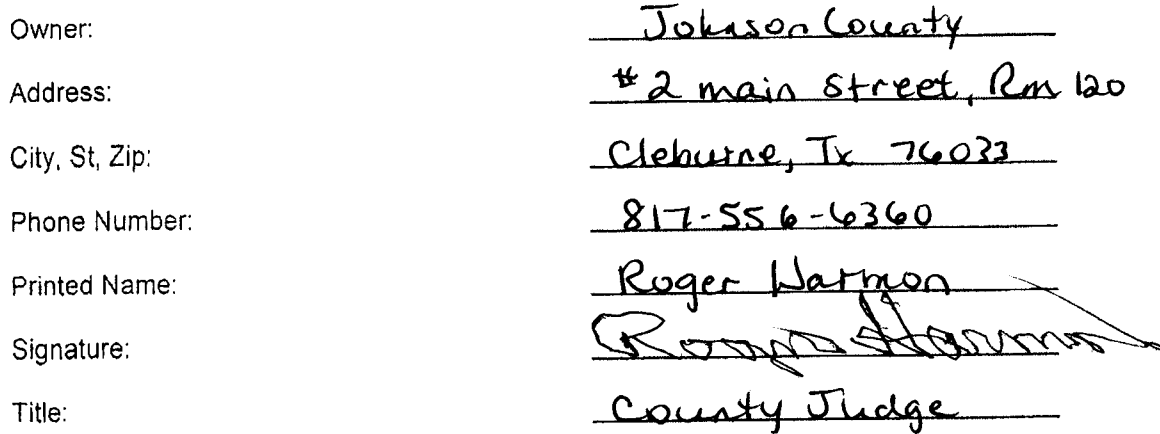 Owner: Johnson County
Address: #2 main Street, Rm 120
City, St, Zip: Cleburne, Tx 76033
Phone Number: 817-556-6360
Printed Name: Roger Harmon
Signature: Roger Harmon
Title: County Judge